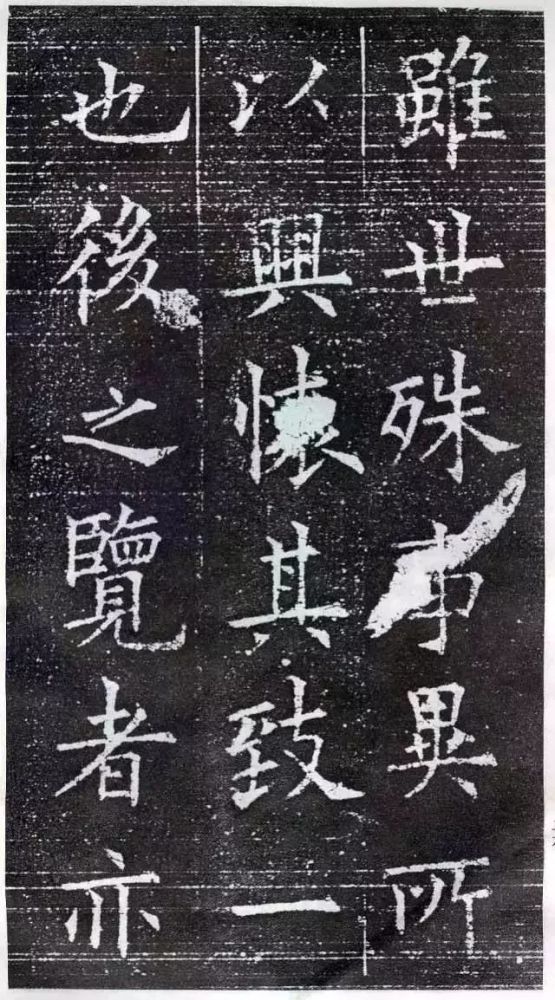 雖世殊事異所
以興懐其致一
也後之覽者亦